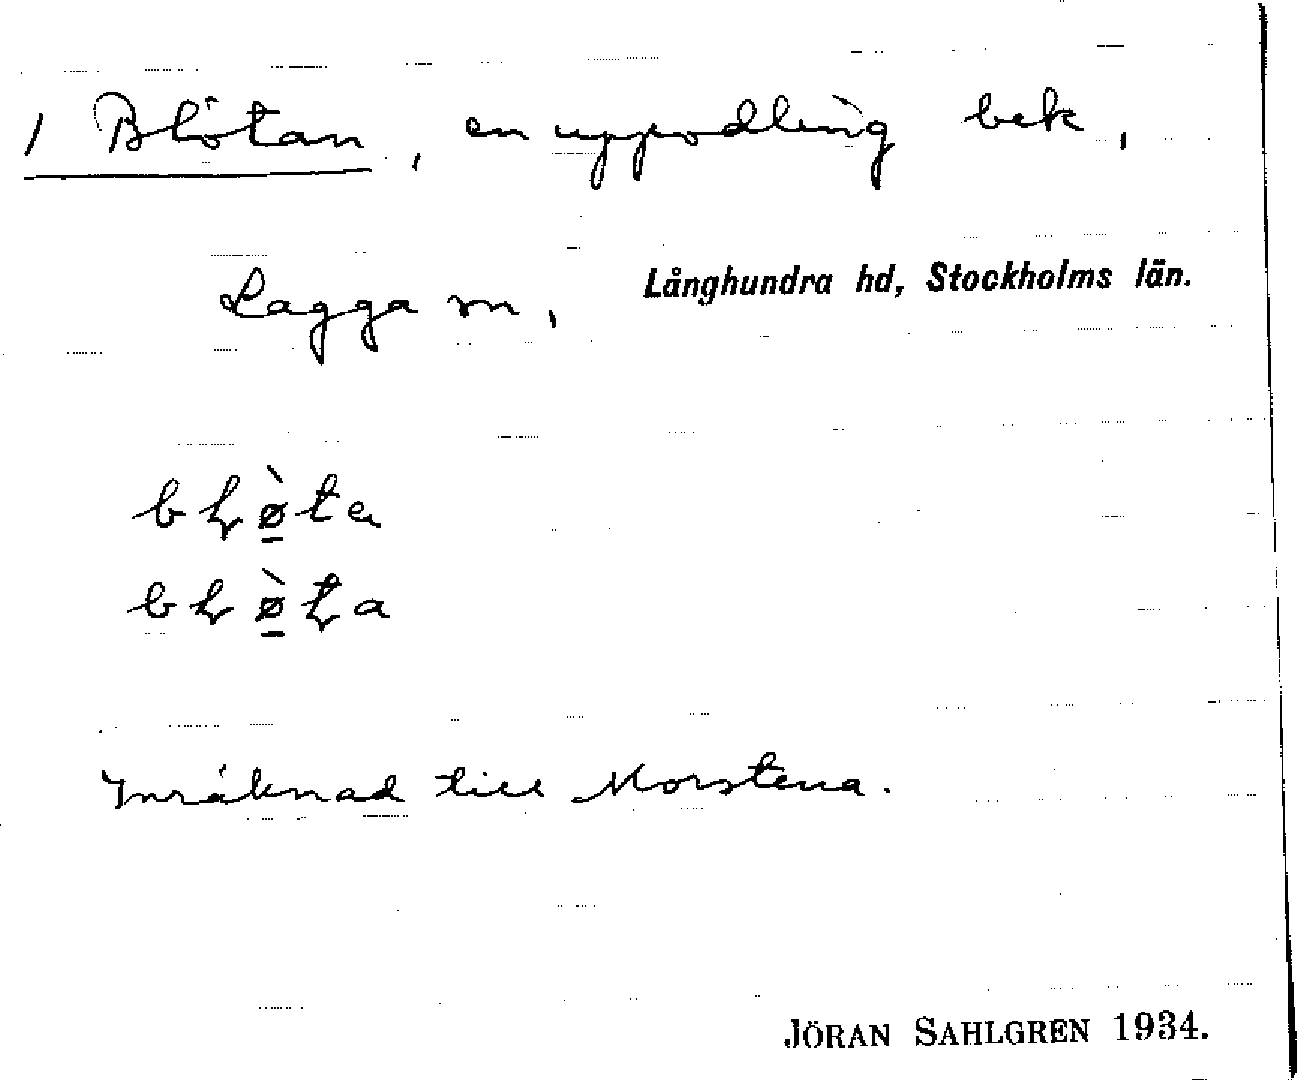 1 Blötan, en uppodling bek,
Lagga sn, Långhundra hd, Stockholms län.
bḷø̠̀ta
bḷø̠̀ṭa
Inräknad till Morstena.
JÖRAN SAHLGREN 1934.